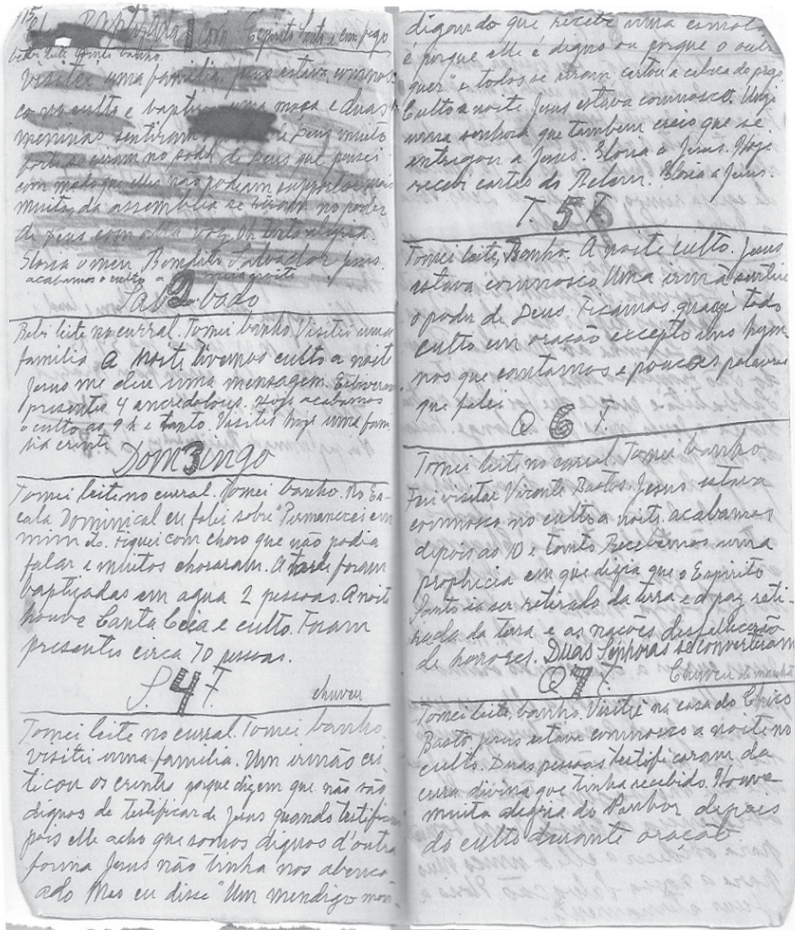 Baptizada com Espirito Santo e com fogo
banho.
Visitei uma familia. Jesus estava comnos-
co no culto e baptizou uma moça e duas
meninas sentiram
no poder de Deus que pensei
com medo que elles não podiam supportar mais
muitos da assemblea no poder
de Deus com
Gloria o meu Bendito Salvador Jesus.
acabamos o culto a meia noite
Sab 2 bado
Bebi leite no curral. Tomei banho. Visitei uma
familia. A noite tivemos culto a noite
Jesus me deu uma mensagem. Estiveram
presentes 4 incredolous. Hoje acabamos
o culto as 9 h e tanto. Visitei hoje uma fam
ilia crente
Dom 3 ingo
Tomei leite no curral. Tomei banho. Na Es-
cola Dominical eu falei sobre "Permanecei em
mim etc. Fiquei com choro que não podia
falar e muitos choraram. A tarde foram
baptizadas em agua 2 pessoas. A noite
houve Santa Ceia e culto. Foram
presentes circa 70 pessoas.
S. 4 F. chuveu
Tomei leite no curral. Tomei banho,
visitei uma familia. Um irmão cri-
ticou os crentes porque dizem que não são
dignos de testificar de Jesus quando testificam
pois elle acho que somos dignos d'outra
forma Jesus não tinha nos abenço-
ado Mas eu disse "Um mendigo não
digando que recebe uma esmola
é porque elle é digno ou porque o outro
quer" e todos se riram cortou a cabeça do prego
Culto a noite. Jesus estava comnosco. Ungi
uma senhora que tambem creio que se
entregou a Jesus. Gloria a Jesus. Hoje
recebi cartas do Belem. Gloria a Jesus.
T. 5 F.
Tomei leite, Banho. A noite culto. Jesus
estava comnosco Uma irmã sentiu
o poder de Deus. Ficamos quase todo
culto em oração excepto uns hym-
nos que cantamos e poucas palavras
que falei
Q 6 F.
Tomei leite no curral. Tomei banho.
Fui visitar Vicente Bastos Jesus estava
comnosco no culto a noite. acabamos
depois ao 10 e tanto Recebemos uma
prophecia em que dizia que o Espirito
Santo ia ser retirado da terra e a paz reti-
rada da terra e as nações desfallecerão
de horrores. Duas senhoras se converteram
Q 7 F. Chuveu de manhã
Tomei leite, banho. Visitei na casa do Chico
Basto Jesus esteve comnosco a noite no
culto. Duas pessoas testificaram da
cura divina que tinha recebido. Houve
muita alegria do Senhor depois
do culto durante oração